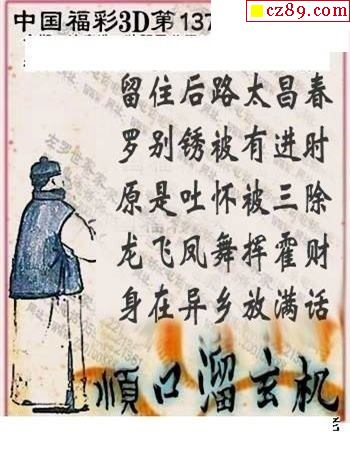 cz89.com
中国福彩3D第137
留住后路太昌春
罗别锈被有进时
原是吐怀被三除
龙飞凤舞挥霍财
身在异乡放满话
顺口溜玄机